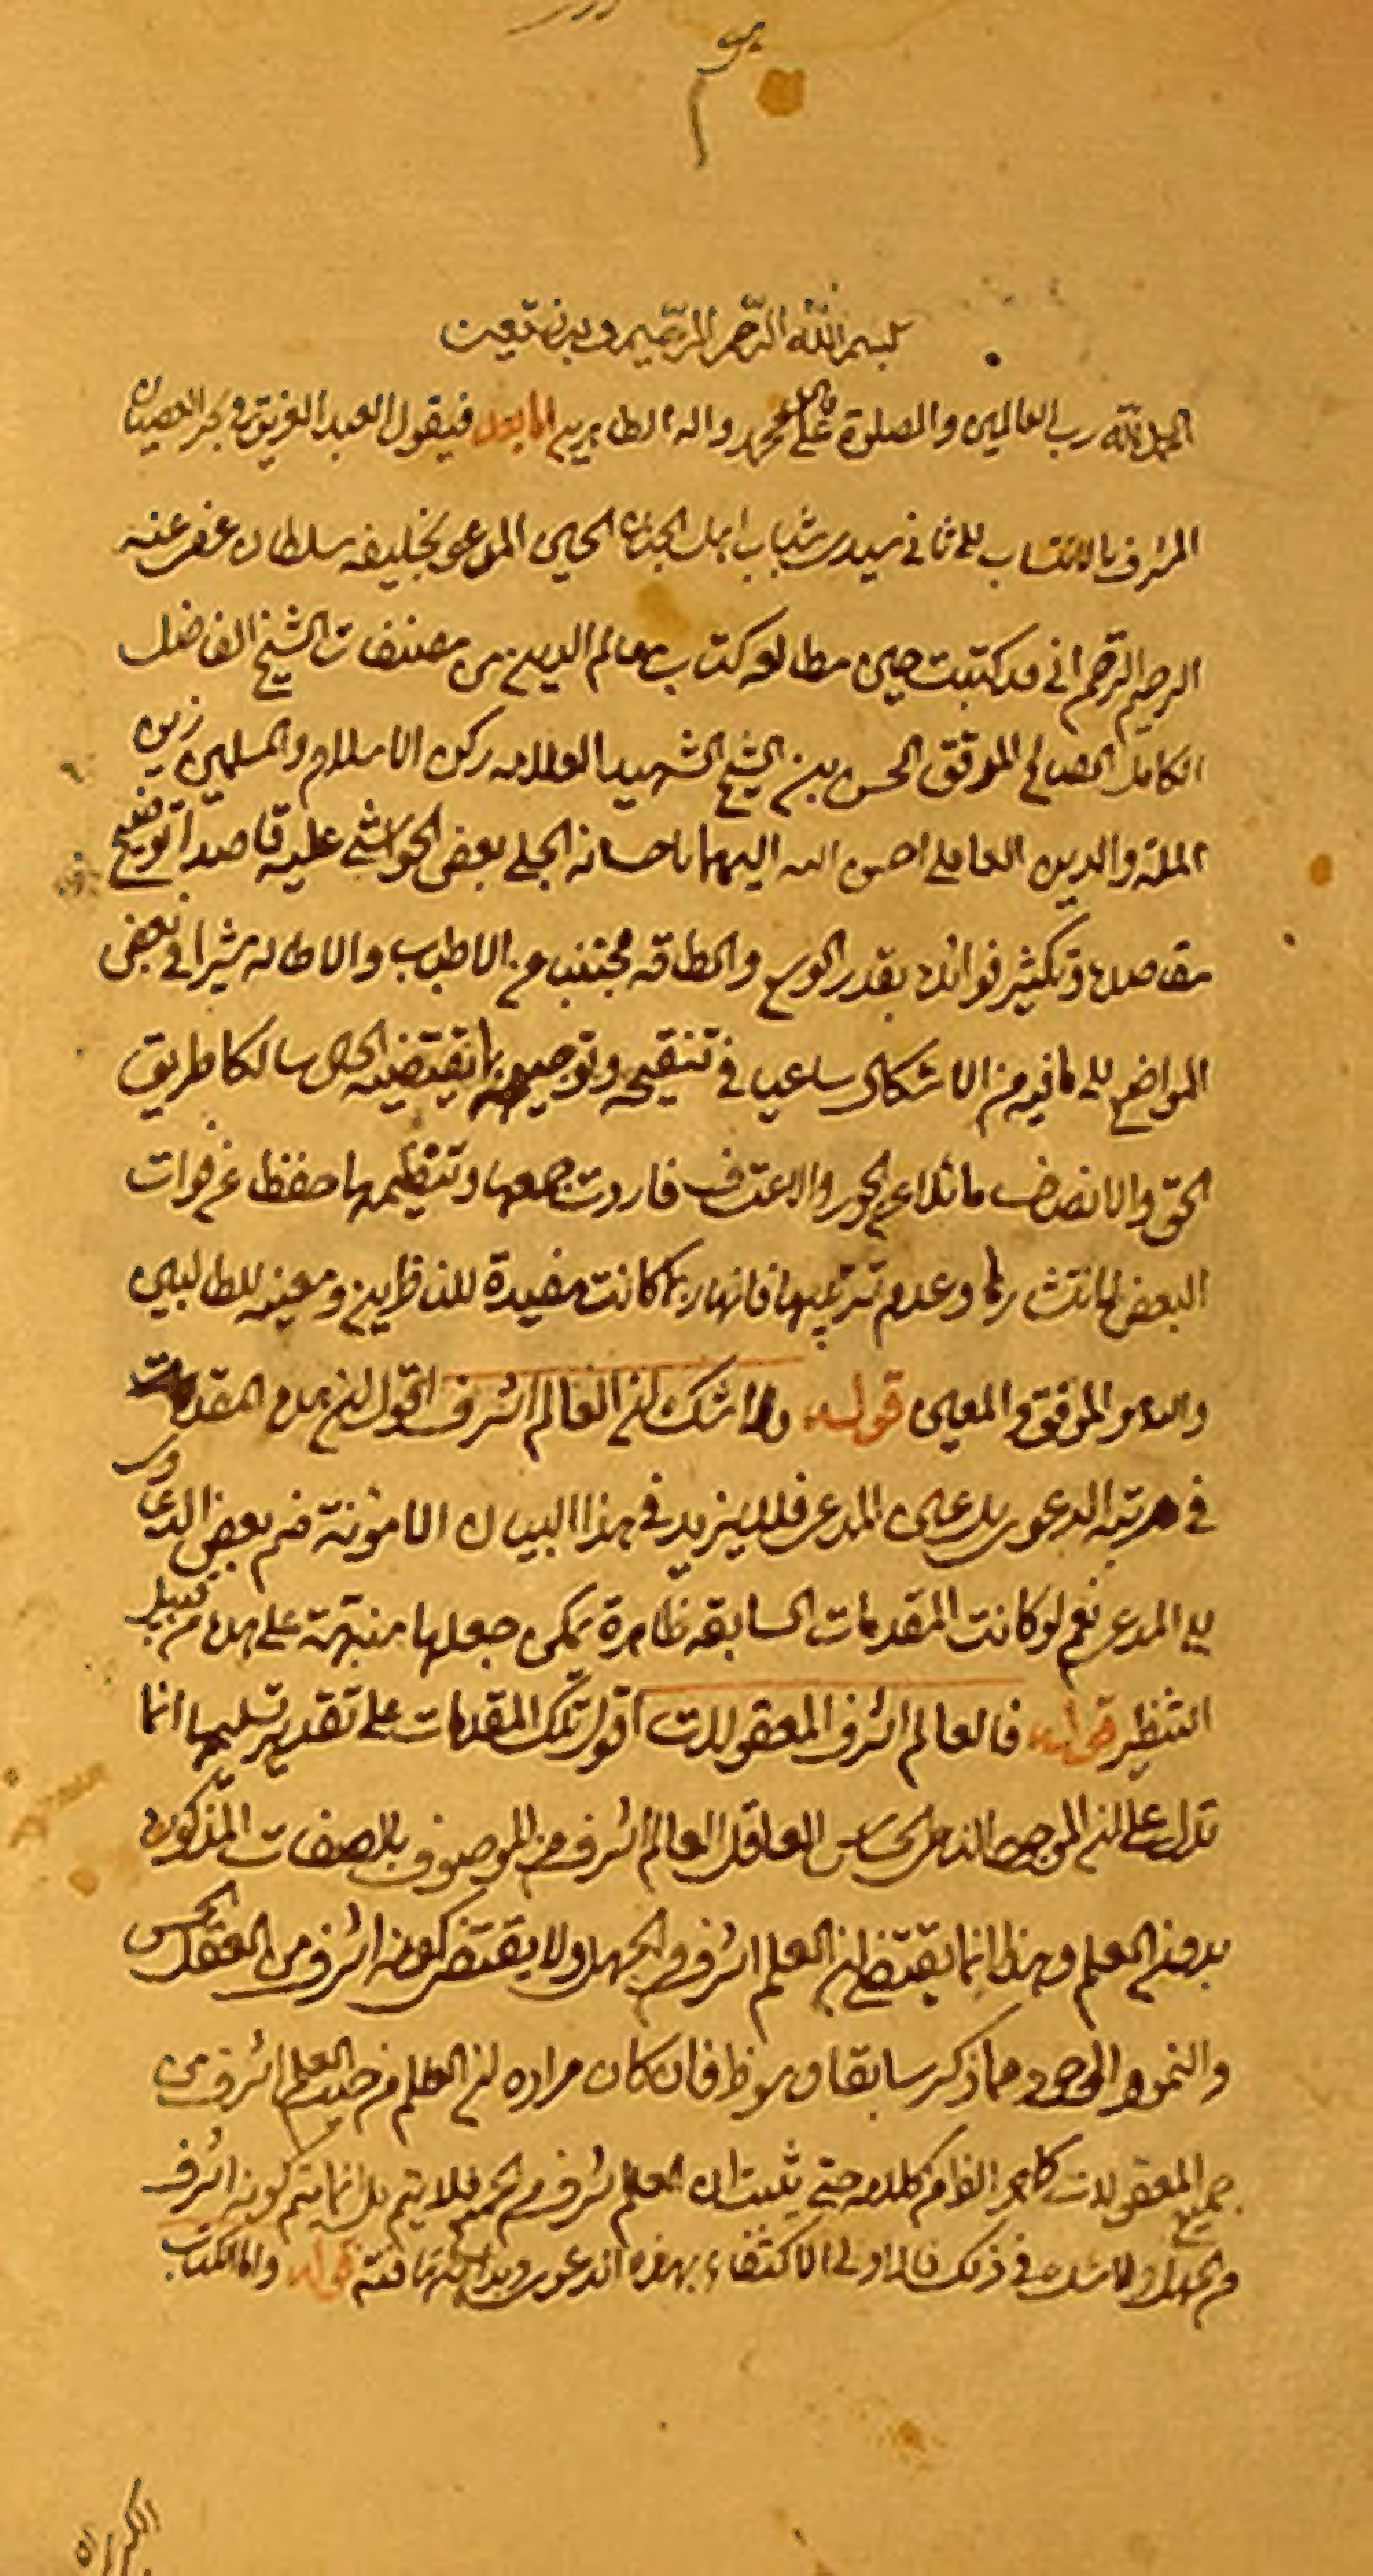 بسم الله الرحمن الرحيم وبه نستعين
الحمد لله رب العالمين والصلوة على محمد واله الطاهرين اما بعد فيقول العبد الغريق في بحر العصيان
المشرف بالانتساب الى ثاني سيدي شباب اهل الجنان الحسين المدعو بخليفه سلطان عفى عنه
الرحيم الرحمن اني قد كتبت حين مطالعه كتاب معالم الدين من مصنفات الشيخ الفاضل
الكامل الصالح الموفق الحسن بن الشيخ الشهيد العلامه ركن الاسلام والمسلمين زين
الملة والدين العاملي احسن الله اليهما باحسانه الجلي بعض الحواشي عليه قاصدا توضيح
مقاصده وتكثير فوائده بقدر الوسع والطاقه مجتنبا عن الاطناب والاطاله مشيرا في بعض
المواضع الى ما فيه من الاشكال ساعيا في تنقيحه وتوجيهه بما يقتضيه الحال سالكا طريق
الحق والانصاف مائلا عن الجور والاعتساف فاردت جمعها وتنظيمها حفظا عن فوات
البعض لانتشارها وعدم ترتيبها فانها ربما كانت مفيدة للناظرين ومعينه للطالبين
والله هو الموفق والمعين قوله ولا شك ان العالم اشرف اقول ان هذه المقدمات
في مرتبه الدعوى بل عين المدعى فلا يزيد في هذا البيان الا مؤنة ضم بعض الدعاوى
الى المدعى نعم لو كانت المقدمات السابقه ظاهرة يمكن جعلها منبهة على هذه من قبيل
التنظير قوله فالعالم اشرف المعقولات اقول تلك المقدمات على تقدير تسليمها انما
تدل على ان الموجود النامي الحساس العاقل العالم اشرف من الموصوف بالصفات المذكوره
بدون العلم وهذا انما يقتضي ان العلم اشرف من الجهل ولا يقتضي كونه اشرف من العقل والحس
والنمو والوجود مما ذكر سابقا وهو ظ فان كان مراده ان العلم من حيث العلم اشرف من
جميع المعقولات كما هو الظ من كلامه حتى يثبت ان العلم اشرف من الجميع فلا يتم بل انما يتم كونه اشرف
من الجهل ولا شك في ذلك فالاولى الاكتفاء بهذه الدعوى وبداهته كافية قوله واما الكتاب